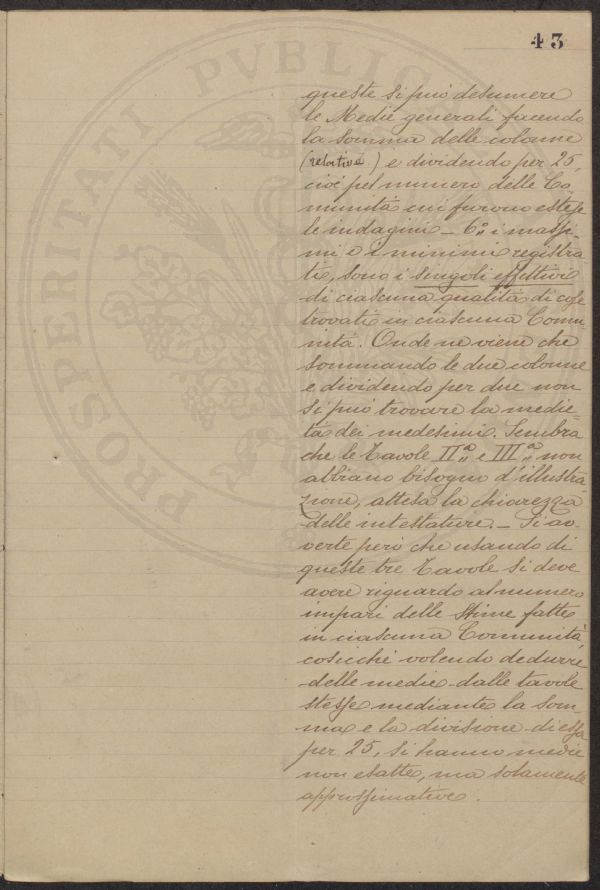 43
queste si può desumere
le Medie generali facendo
la somma delle colonne
(relative) e dividendo per 25,
cioè pel numero delle Co-
munità cui furono estese
le indagini – 6.º i massi-
mi e i minimi registra-
ti, sono i singoli effettivi
di ciascuna qualità di cose
trovati in ciascuna Comu-
nità. Onde ne viene che
sommando le due colonne
e dividendo per due non
si può trovare la medie-
tà dei medesimi. Sembra
che le Tavole IIª e IIIª non
abbiano bisogno d'illustra-
zione, attesa la chiarezza
delle intestature. – Si av-
verte però che usando di
queste tre Tavole si deve
avere riguardo al numero
impari delle Stime fatte
in ciascuna Comunità,
cosicché volendo dedurre
delle medie dalle tavole
stesse mediante la som-
ma e la divisione di essa
per 25, si hanno medie
non esatte, ma solamente
approssimative.
PROSPERITATI PVBLIC